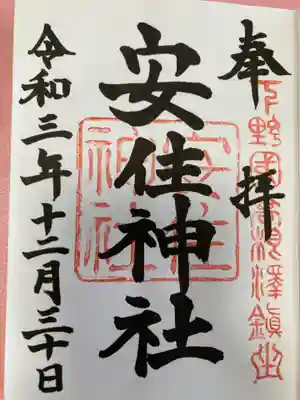 奉拝
下野國高根澤鎮坐
安住神社
安住神社
令和三年十二月三十日